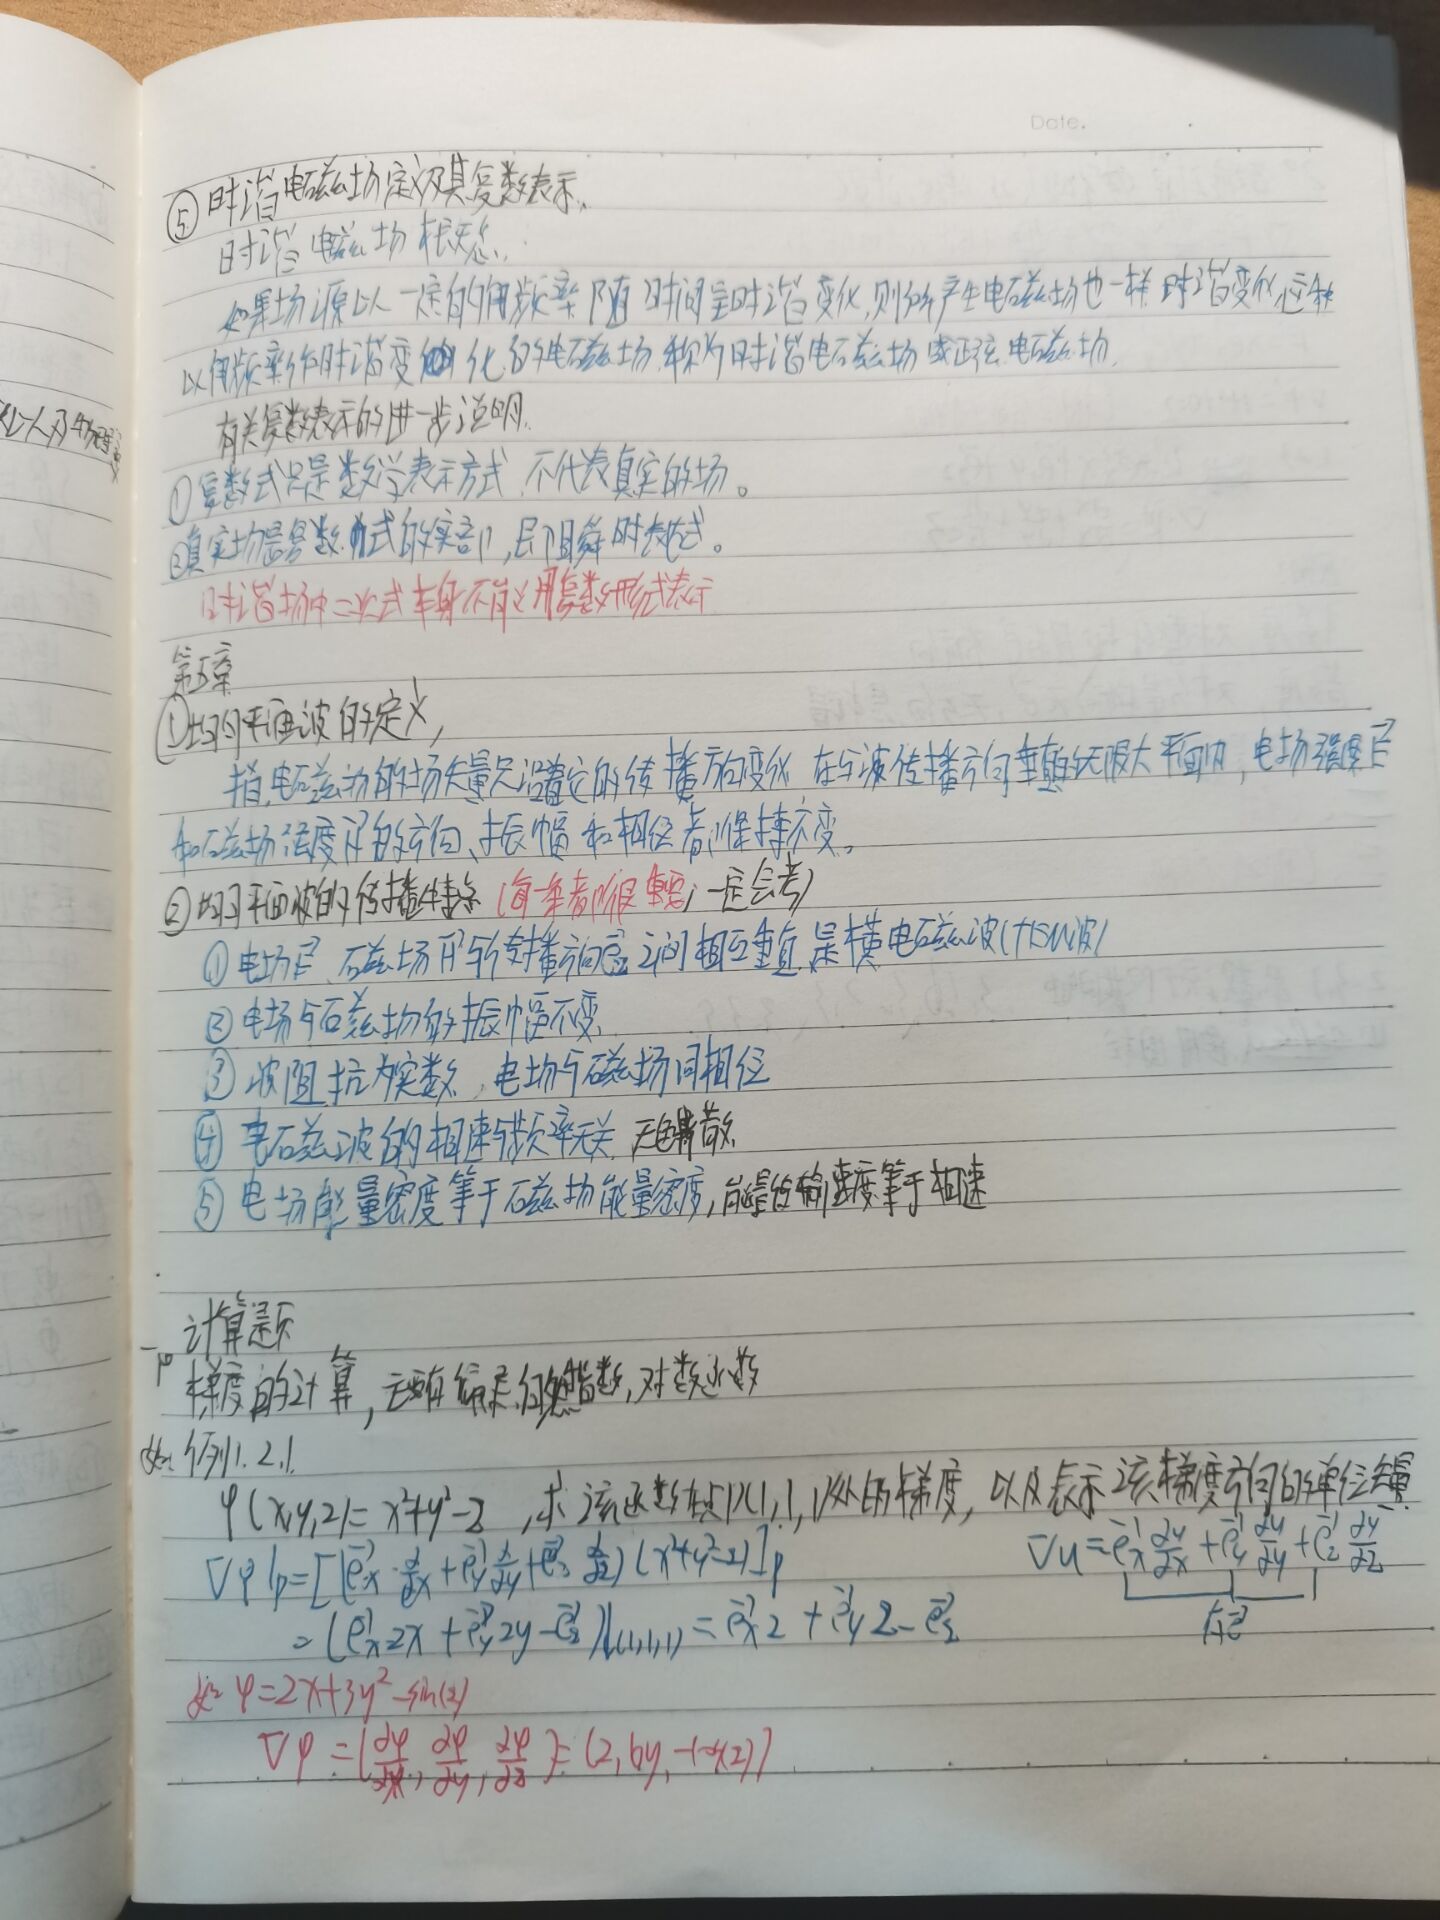 Date.
⑤时谐电磁场定义及其复数表示.
时谐电磁场概念.
如果场源以一定的角频率随时间呈时谐变化,则所产生电磁场也一样时谐变化,这种
以角频率作时谐变化的电磁场,称为时谐电磁场或正弦电磁场.
有关复数表示的进一步说明.
①复数式只是数学表示方式,不代表真实的场。
②真实场是复数式的实部,即瞬时表达式。
时谐场中二次式本身不能用复数形式表示
第五章
①均匀平面波的定义,
指电磁场的场矢量只沿着它的传播方向变化,在与波传播方向垂直的无限大平面内,电场强度E⃗
和磁场强度H⃗的方向、振幅和相位都保持不变。
②均匀平面波的传播特点(每一条都很重要,一定会考)
①电场E⃗、磁场H⃗与传播方向e⃗z之间相互垂直,是横电磁波(TEM波)
②电场与磁场的振幅不变.
③波阻抗为实数,电场与磁场同相位
④电磁波的相速与频率无关,无色散.
⑤电场能量密度等于磁场能量密度,能量传输速度等于相速
计算题
梯度的计算, 指数,对数函数
如:例1.2.1.
φ(x,y,z)=x²+y²-z,求该函数在点P(1,1,1)处的梯度,以及表示该梯度方向的单位矢量
∇φ|p=[(e⃗x ∂/∂x+e⃗y ∂/∂y+e⃗z ∂/∂z)(x²+y²-z)]p
∇u=e⃗x ∂u/∂x+e⃗y ∂u/∂y+e⃗z ∂u/∂z
=(e⃗x2x+e⃗y2y-e⃗z)|(1,1,1)=e⃗x2+e⃗y2-e⃗z
如φ=2x+3y²-sin(z)
∇φ=(∂φ/∂x,∂φ/∂y,∂φ/∂z)=(2,6y,-cos(z))